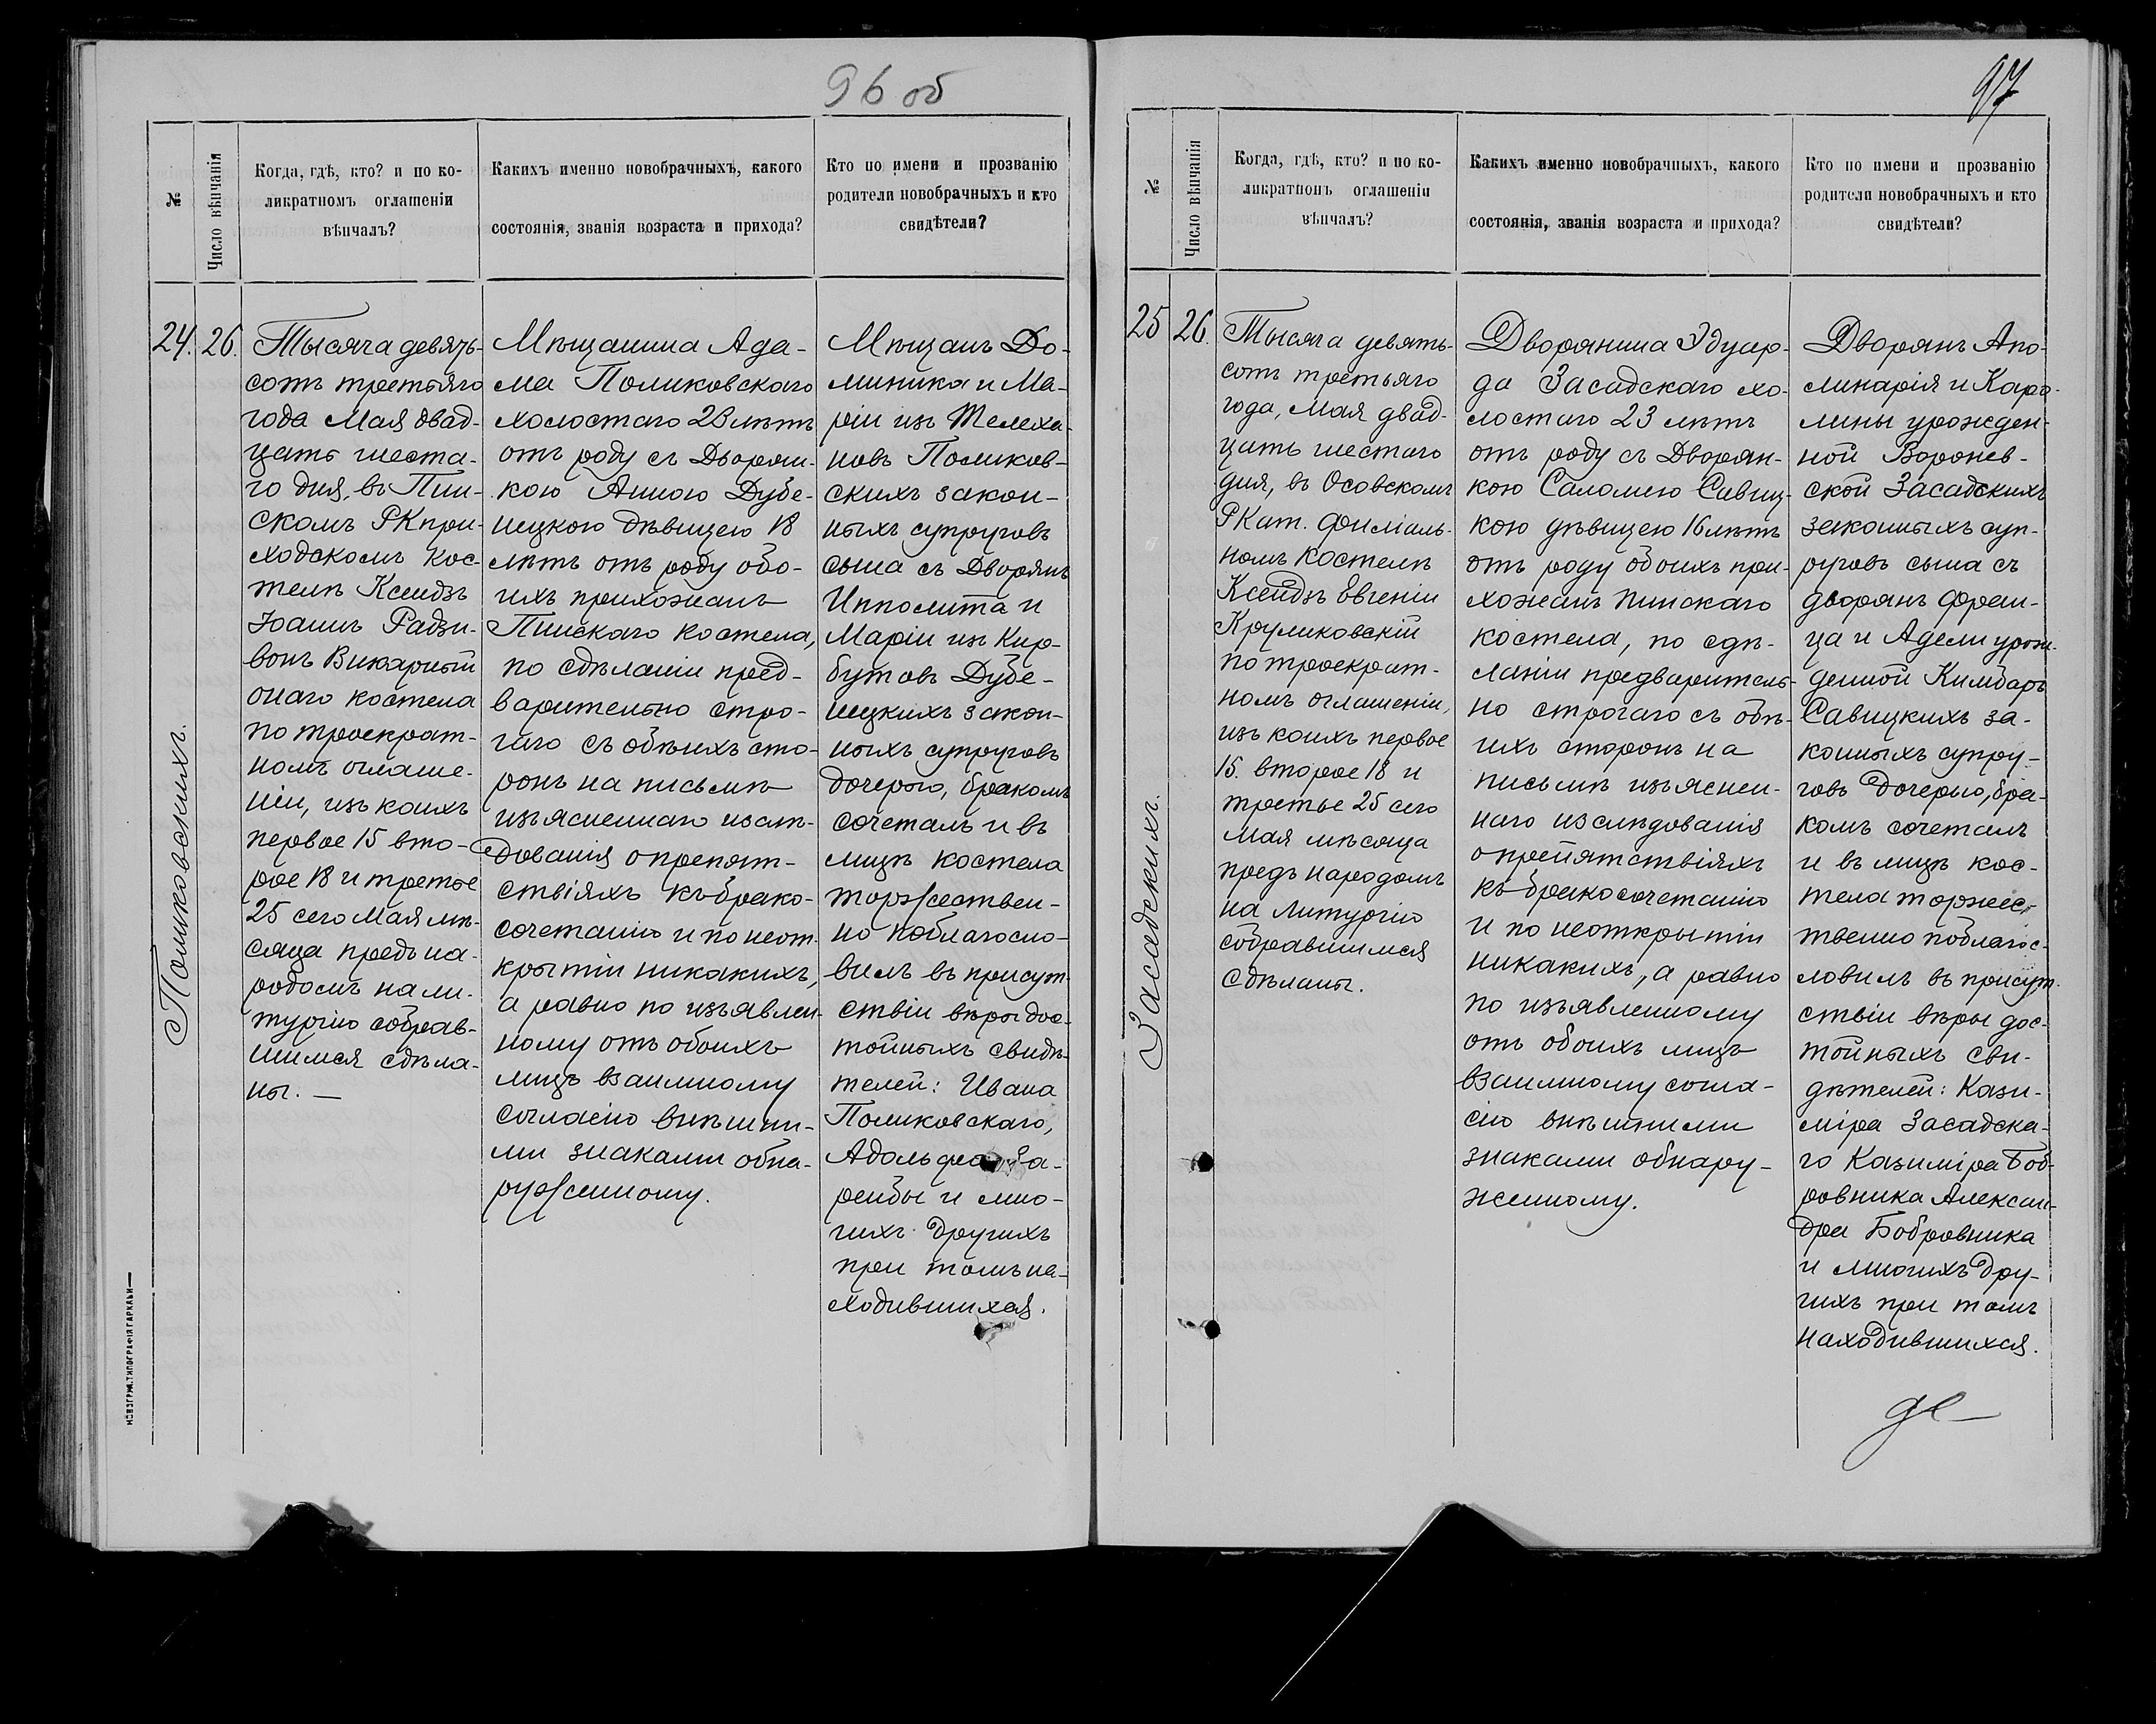 96 об
№
Число вѣнчанія
Когда, гдѣ, кто? и по ко-
ликратномъ оглашеніи
вѣнчалъ?
Какихъ именно новобрачныхъ, какого
состоянія, званія возраста и прихода?
Кто по имени и прозванію
родители новобрачныхъ и кто
свидѣтели?
24.
26.
Поликовскихъ.
Тысяча девять-
сотъ третьяго
года Мая двад-
цать шеста-
го дня, въ Пин-
скомъ РК при-
ходскомъ кос-
телѣ Ксендзъ
Іоаннъ Радзи-
вонъ Викарный
онаго костела
по троекрат-
номъ оглаше-
ніи, изъ коихъ
первое 15 вто-
рое 18 и третье
25 сего Мая мѣ-
сяца предъ на-
родомъ на ли-
тургію собрав-
шимся сдѣла-
ны. —
Мѣщанина Ада-
ма Поликовскаго
холостаго 23 лѣтъ
отъ роду съ Дворян-
кою Анною Дубе-
нецкою дѣвицею 18
лѣтъ отъ роду обо-
ихъ прихожанъ
Пинскаго костела,
по сдѣланіи пред-
варительно стро-
гаго съ обѣихъ сто-
ронъ на письмѣ
изъясненнаго изслѣ-
дованія о препят-
ствіяхъ къ брако-
сочетанію и по неот-
крытіи никакихъ,
а равно по изъявлен-
ному отъ обоихъ
лицъ взаимному
согласію внѣшни-
ми знаками обна-
руженному.
Мѣщанъ До-
миника и Ма-
ріи изъ Телеха-
новъ Поликов-
скихъ закон-
ныхъ супруговъ
сына съ Дворянъ
Ипполита и
Маріи изъ Кир-
бутовъ Дубе-
нецкихъ закон-
ныхъ супруговъ
дочерью, бракомъ
сочеталъ и въ
лицѣ костела
торжествен-
но поблагосло-
вилъ въ присут-
ствіи вѣры дос-
тойныхъ свидѣ-
телей: Ивана
Поликовскаго,
Адольфа За-
ренбы и мно-
гихъ другихъ
при томъ на-
ходившихся.
НОВОГРУД. ТИПОГРАФІЯ ГАРКАВИ
97
№
Число вѣнчанія
Когда, гдѣ, кто? и по ко-
ликратномъ оглашеніи
вѣнчалъ?
Какихъ именно новобрачныхъ, какого
состоянія, званія возраста и прихода?
Кто по имени и прозванію
родители новобрачныхъ и кто
свидѣтели?
25
26.
Засадскихъ.
Тысяча девять-
сотъ третьяго
года, Мая двад-
цать шестаго
дня, въ Осовскомъ
РКат. филіаль-
номъ костелѣ
Ксендзъ Евгеній
Круликовскій
по троекрат-
номъ оглашеніи,
изъ коихъ первое
15. второе 18 и
третье 25 сего
Мая мѣсяца
предъ народомъ
на литургію
собравшимся
сдѣланы.
Дворянина Эдуар-
да Засадскаго хо-
лостаго 23 лѣтъ
отъ роду съ Дворян-
кою Саломею Савиц-
кою дѣвицею 16 лѣтъ
отъ роду обоихъ при-
хожанъ Пинскаго
костела, по сдѣ-
ланіи предваритель-
но строгаго съ обѣ-
ихъ сторонъ на
письмѣ изъяснен-
наго изслѣдованія
о препятствіяхъ
къ бракосочетанію
и по неоткрытіи
никакихъ, а равно
по изъявленному
отъ обоихъ лицъ
взаимному согла-
сію внѣшними
знаками обнару-
женному.
Дворянъ Апо-
линарія и Каро-
лины урожден-
ной Воронев-
ской Засадскихъ
законныхъ суп-
руговъ сына съ
дворянъ Фран-
ца и Адели урож-
денной Кимбаръ
Савицкихъ за-
конныхъ супру-
говъ дочерью, бра-
комъ сочеталъ
и въ лицѣ кос-
тела торжес-
твенно поблагос-
ловилъ въ присут-
ствіи вѣры дос-
тойныхъ сви-
дѣтелей: Кази-
міра Засадска-
го Казиміра Боб-
ровника Алексан-
дра Бобровника
и многихъ дру-
гихъ при томъ
находившихся.